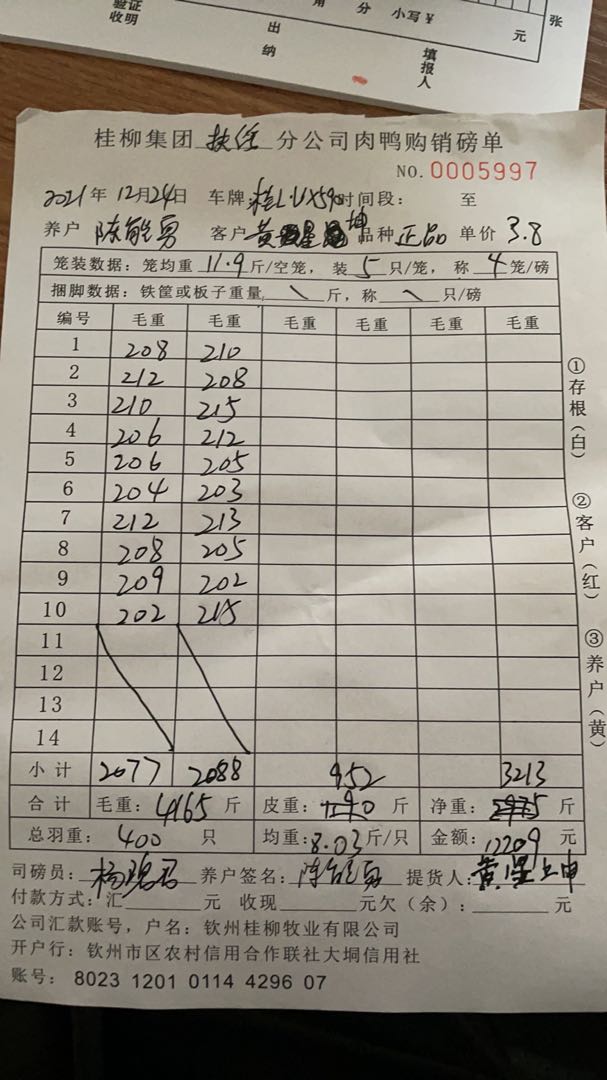 验证 角 分 小写¥ 元 张
收明 出纳 填报人
桂柳集团 扶任 分公司肉鸭购销磅单
NO. 0005997
2021年12月24日 车牌:桂L·UX590 时间段: 至
养户 陈能勇 客户 黄星坤 品种 正品 单价 3.8
笼装数据:笼均重 11.9 斤/空笼,装 5 只/笼,称 4 笼/磅
捆脚数据:铁筐或板子重量 \ 斤,称 \ 只/磅
编号 毛重 毛重 毛重 毛重 毛重 毛重
1 208 210
2 212 208
3 210 215
4 206 212
5 206 205
6 204 203
7 212 213
8 208 205
9 209 202
10 202 215
11
12
13
14
小计 2077 2088 952 3213
合计 毛重:4165 斤 皮重: 斤 净重: 斤
总羽重:400 只 均重:8.03 斤/只 金额:12209 元
司磅员: 养户签名:陈能勇 提货人:黄星
付款方式:汇 元 收现 元欠(余): 元
公司汇款账号,户名:钦州桂柳牧业有限公司
开户行:钦州市区农村信用合作联社大垌信用社
账号:8023 1201 0114 4296 07
①存根(白)
②客户(红)
③养户(黄)